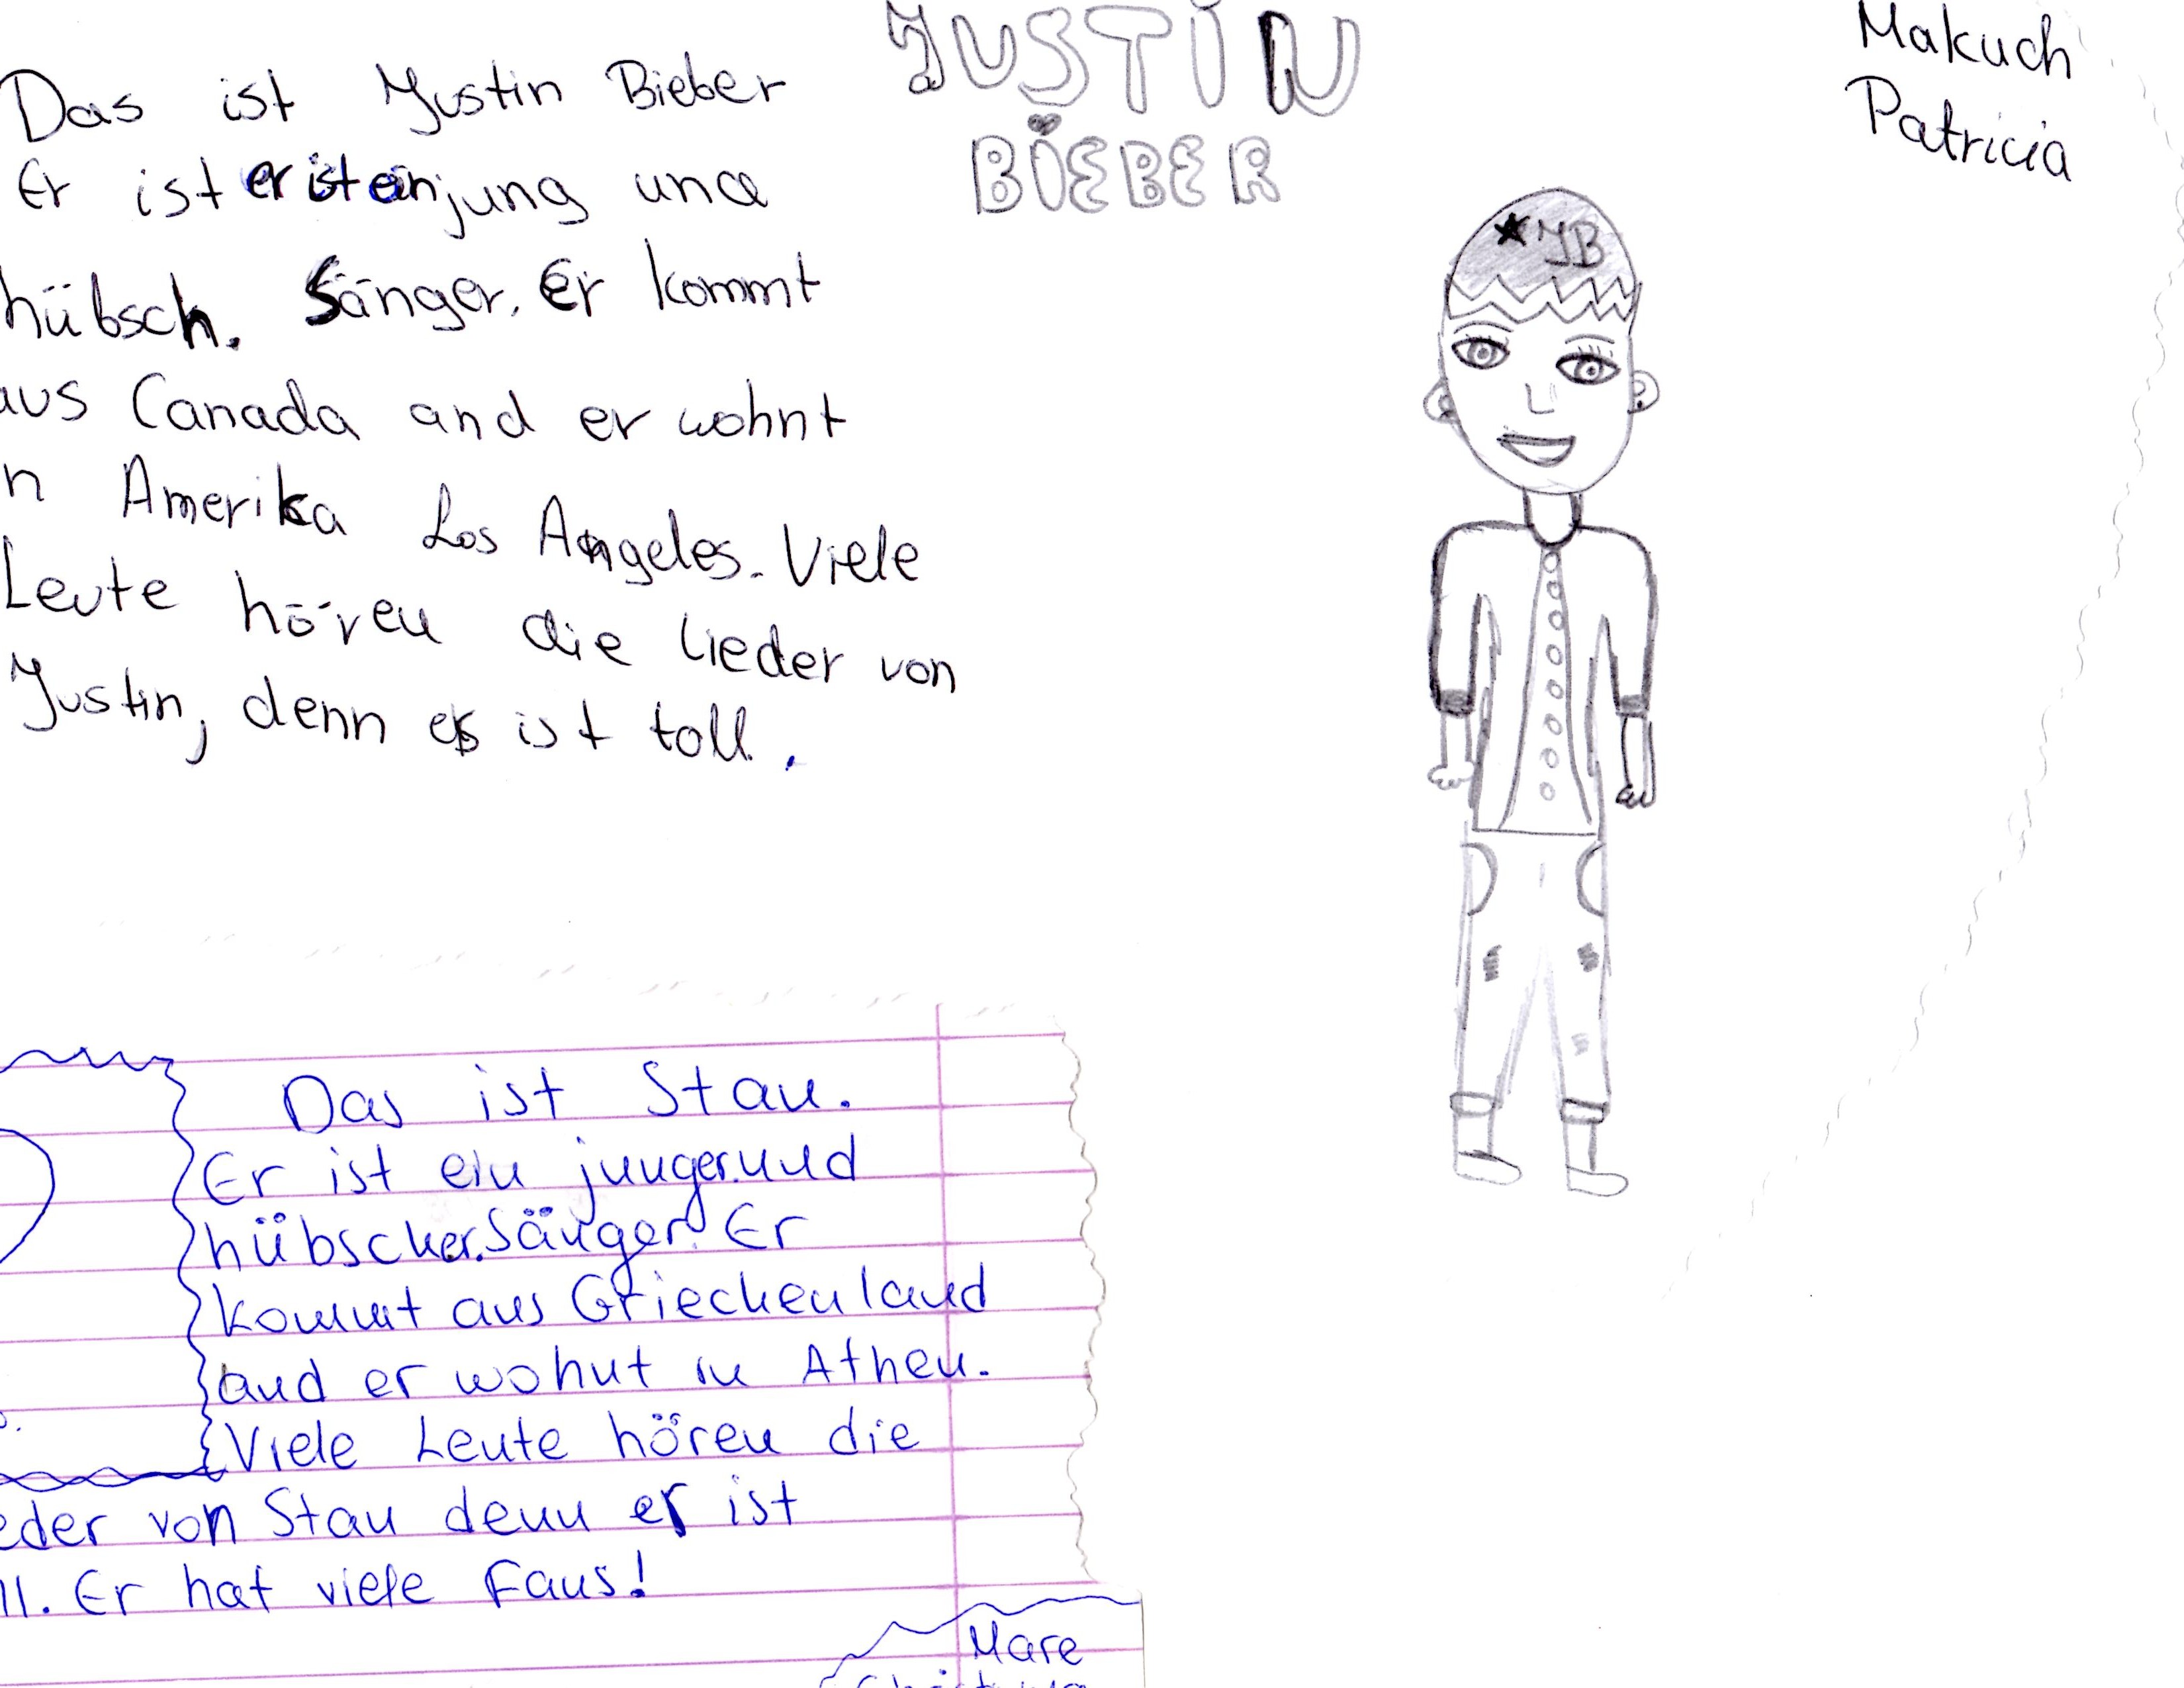 JUSTIN
BIEBER
Makuch
Patricia
Das ist Justin Bieber
Er ist er ist ein jung und
hübsch. Sänger. Er kommt
aus Canada and er wohnt
n Amerika Los Angeles. Viele
Leute hören die lieder von
Justin, denn es ist toll.
JB
Das ist Stan.
Er ist ein junger und
hübscher Sänger. Er
kommt aus Griechenland
and er wohnt in Athen.
Viele Leute hören die
eder von Stan denn er ist
ll. Er hat viele Fans!
Mare